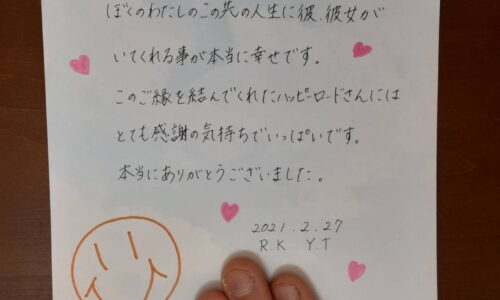 ぼくのわたしのこの先の人生に彼、彼女が
いてくれる事が本当に幸せです。
このご縁を結んでくれたハッピーロードさんには
とても感謝の気持ちでいっぱいです。
本当にありがとうございました。
2021.2.27
R.K Y.T